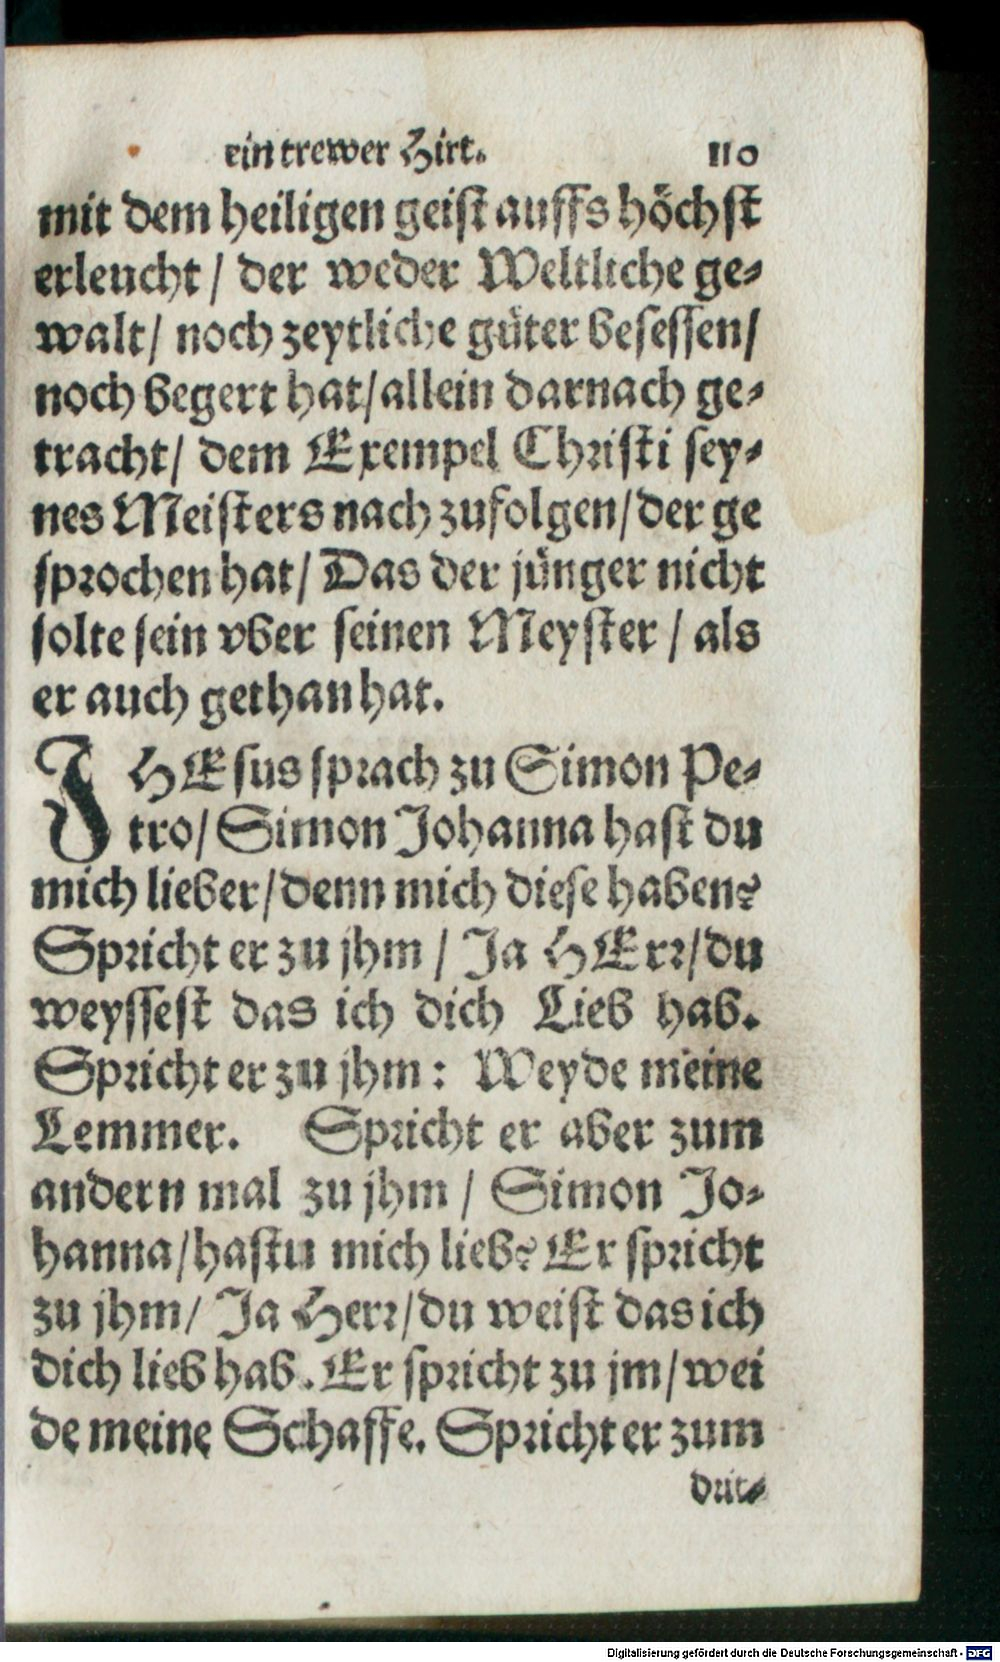 ein trewer Hirt. 110
mit dem heiligen geist auffs höchst
erleucht / der weder Weltliche ge-
walt / noch zeytliche güter besessen /
noch begert hat / allein darnach ge-
tracht / dem Exempel Christi sey-
nes Meisters nach zufolgen / der ge
sprochen hat / Das der jünger nicht
solte sein vber seinen Meyster / als
er auch gethan hat.
JHEsus sprach zu Simon Pe-
tro / Simon Johanna hast du
mich lieber / denn mich diese haben?
Spricht er zu jhm / Ja HErr / du
weyssest das ich dich Lieb hab.
Spricht er zu jhm: Weyde meine
Lemmer. Spricht er aber zum
andern mal zu jhm / Simon Jo-
hanna / hastu mich lieb? Er spricht
zu jhm / Ja Herr / du weist das ich
dich lieb hab. Er spricht zu jm / wei
de meine Schaffe. Spricht er zum
drit-
Digitalisierung gefördert durch die Deutsche Forschungsgemeinschaft - DFG